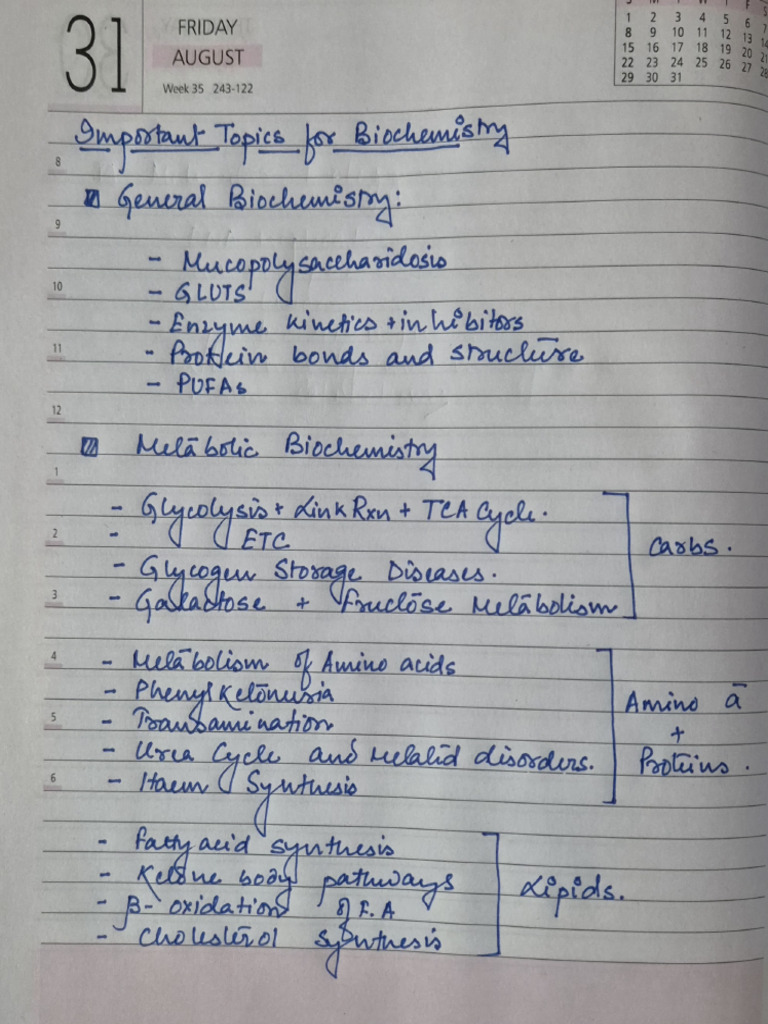 31
FRIDAY
AUGUST
Week 35 243-122
1 2 3 4 5 6 7
8 9 10 11 12 13 14
15 16 17 18 19 20 21
22 23 24 25 26 27 28
29 30 31
Important Topics for Biochemistry
8
General Biochemistry:
9
- Mucopolysaccharidosis
10
- GLUTS
- Enzyme kinetics + inhibitors
11
- Protein bonds and structure
- PUFAs
12
Metabolic Biochemistry
1
- Glycolysis + Link Rxn + TCA Cycle.
2
- ETC
carbs.
- Glycogen Storage Diseases.
3
- Galactose + Fructose Metabolism
4
- Metabolism of Amino acids
- Phenylketonuria
Amino ā
5
- Transamination
+
- Urea Cycle and related disorders.
Proteins.
6
- Haem Synthesis
- Fatty acid synthesis
- Ketone body pathways
Lipids.
- β- oxidation of F.A
- Cholesterol synthesis